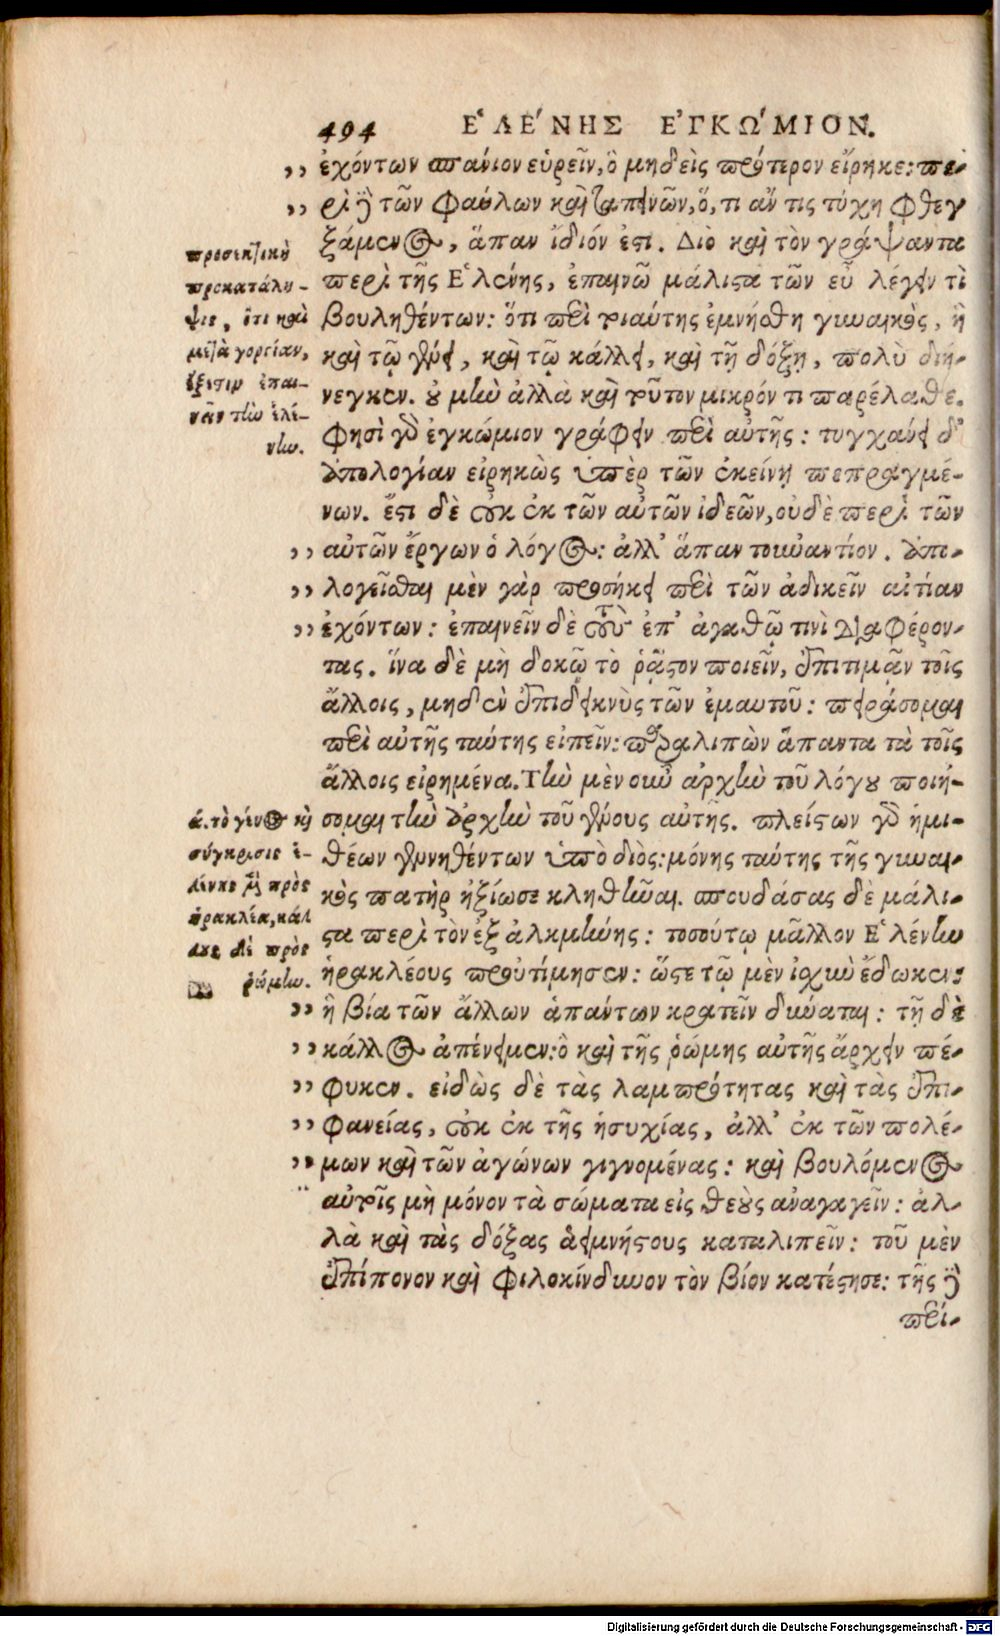 494 ἙΛΈΝΗΣ ἘΓΚΏΜΙΟΝ.
,, ἐχόντων σπάνιον εὑρεῖν, ὃ μηδεὶς πρότερον εἴρηκε: πε-
,, ρὶ δὲ τῶν φαύλων καὶ ταπεινῶν, ὅ, τι ἄν τις τύχῃ φθεγ
ξάμενος, ἅπαν ἴδιόν ἐστι. Διὸ καὶ τὸν γράψαντα
περὶ τῆς Ἑλένης, ἐπαινῶ μάλιστα τῶν εὖ λέγειν τὶ
βουληθέντων: ὅτι περὶ τοιαύτης ἐμνήσθη γυναικὸς, ἣ
καὶ τῷ γένει, καὶ τῷ κάλλει, καὶ τῇ δόξῃ, πολὺ διή-
νεγκεν. οὐ μὴν ἀλλὰ καὶ τοῦτον μικρόν τι παρέλαθε.
φησὶ γὰρ ἐγκώμιον γράφειν περὶ αὐτῆς: τυγχάνει δ'
ἀπολογίαν εἰρηκὼς ὑπὲρ τῶν ἐκείνῃ πεπραγμέ-
νων. ἔστι δὲ οὐκ ἐκ τῶν αὐτῶν ἰδεῶν, οὐδὲ περὶ τῶν
,, αὐτῶν ἔργων ὁ λόγος: ἀλλ' ἅπαν τοὐναντίον. ἀπο-
,, λογεῖσθαι μὲν γὰρ προσήκει περὶ τῶν ἀδικεῖν αἰτίαν
,, ἐχόντων: ἐπαινεῖν δὲ τοὺς ἐπ' ἀγαθῷ τινὶ διαφέρον-
τας. ἵνα δὲ μὴ δοκῶ τὸ ῥᾷστον ποιεῖν, ἐπιτιμᾷν τοῖς
ἄλλοις, μηδὲν ἐπιδεικνὺς τῶν ἐμαυτοῦ: πειράσομαι
περὶ αὐτῆς ταύτης εἰπεῖν: παραλιπὼν ἅπαντα τὰ τοῖς
ἄλλοις εἰρημένα. Τὴν μὲν οὖν ἀρχὴν τοῦ λόγου ποιή-
σομαι τὴν ἀρχὴν τοῦ γένους αὐτῆς. πλείστων γὰρ ἡμι-
θέων γεννηθέντων ὑπὸ διὸς: μόνης ταύτης τῆς γυναι-
κὸς πατὴρ ἠξίωσε κληθῆναι. σπουδάσας δὲ μάλι-
στα περὶ τὸν ἐξ ἀλκμήνης: τοσούτῳ μᾶλλον Ἑλένην
ἡρακλέους προὐτίμησεν: ὥστε τῷ μὲν ἰσχὺν ἔδωκεν:
,, ἣ βίᾳ τῶν ἄλλων ἁπάντων κρατεῖν δύναται: τῇ δὲ
,, κάλλος ἀπένειμεν: ὃ καὶ τῆς ῥώμης αὐτῆς ἄρχειν πέ-
,, φυκεν. εἰδὼς δὲ τὰς λαμπρότητας καὶ τὰς ἐπι-
,, φανείας, οὐκ ἐκ τῆς ἡσυχίας, ἀλλ' ἐκ τῶν πολέ-
,, μων καὶ τῶν ἀγώνων γιγνομένας: καὶ βουλόμενος
αὐτοῖς μὴ μόνον τὰ σώματα εἰς θεοὺς ἀναγαγεῖν: ἀλ-
λὰ καὶ τὰς δόξας ἀειμνήστους καταλιπεῖν: τοῦ μὲν
ἐπίπονον καὶ φιλοκίνδυνον τὸν βίον κατέστησε: τῆς δὲ
περί-
προσεκτικὴ
προκατάλη-
ψις, ὅτι καὶ
μετὰ γοργίαν,
ἔξεστιν ἐπαι-
νεῖν τὴν ἑλέ-
νην.
ά. τὸ γένος καὶ
σύγκρισις ἑ-
λένης πρὸς
ἡρακλέα, κάλ
λους δὲ πρὸς
ῥώμην.
Digitalisierung gefördert durch die Deutsche Forschungsgemeinschaft - DFG